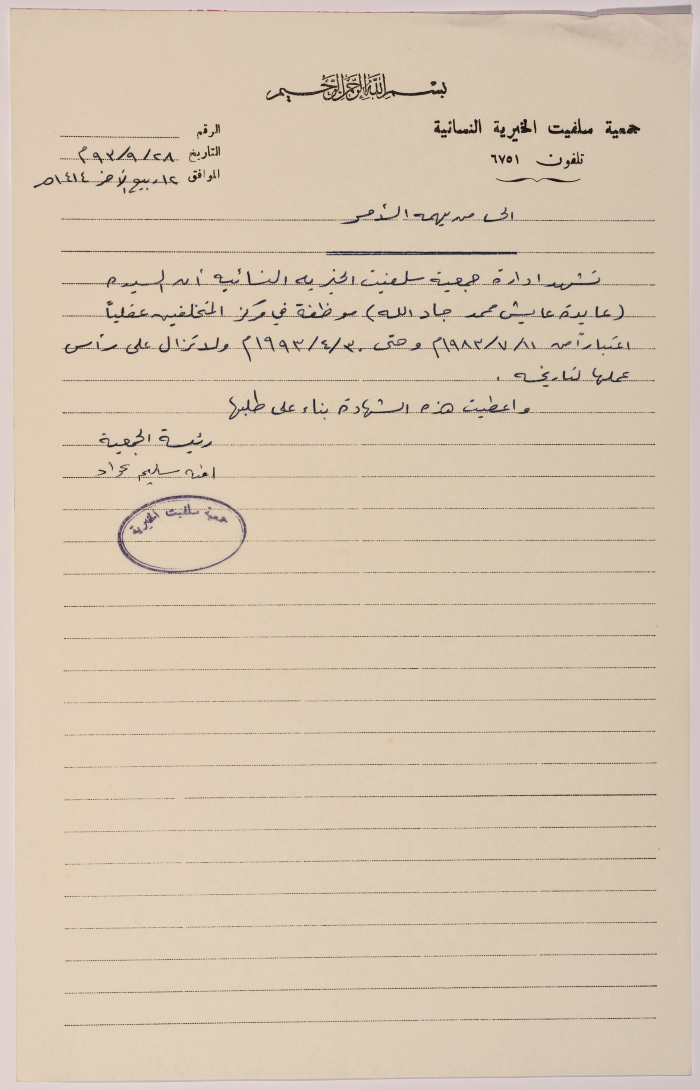 بسم الله الرحمن الرحيم
جمعية سلفيت الخيرية النسائية
تلفون ٦٧٥١
الرقم
التاريخ ٢٨/٩/٩٣م
الموافق ١٢ ربيع الآخر ١٤١٤هـ
الى من يهمه الأمر
تشهد ادارة جمعية سلفيت الخيريه النسائيه أن السيده
(عايدة عايش محمد جاد الله) موظفة في مركز المتخلفين عقلياً
اعتباراً من ١/٧/١٩٨٣م وحتى ٣٠/٤/١٩٩٣م ولا تزال على رأس
عملها لتاريخه .
واعطيت هذه الشهادة بناء على طلبها
رئيسة الجمعية
امنه سليم عواد
جمعية سلفيت الخيرية